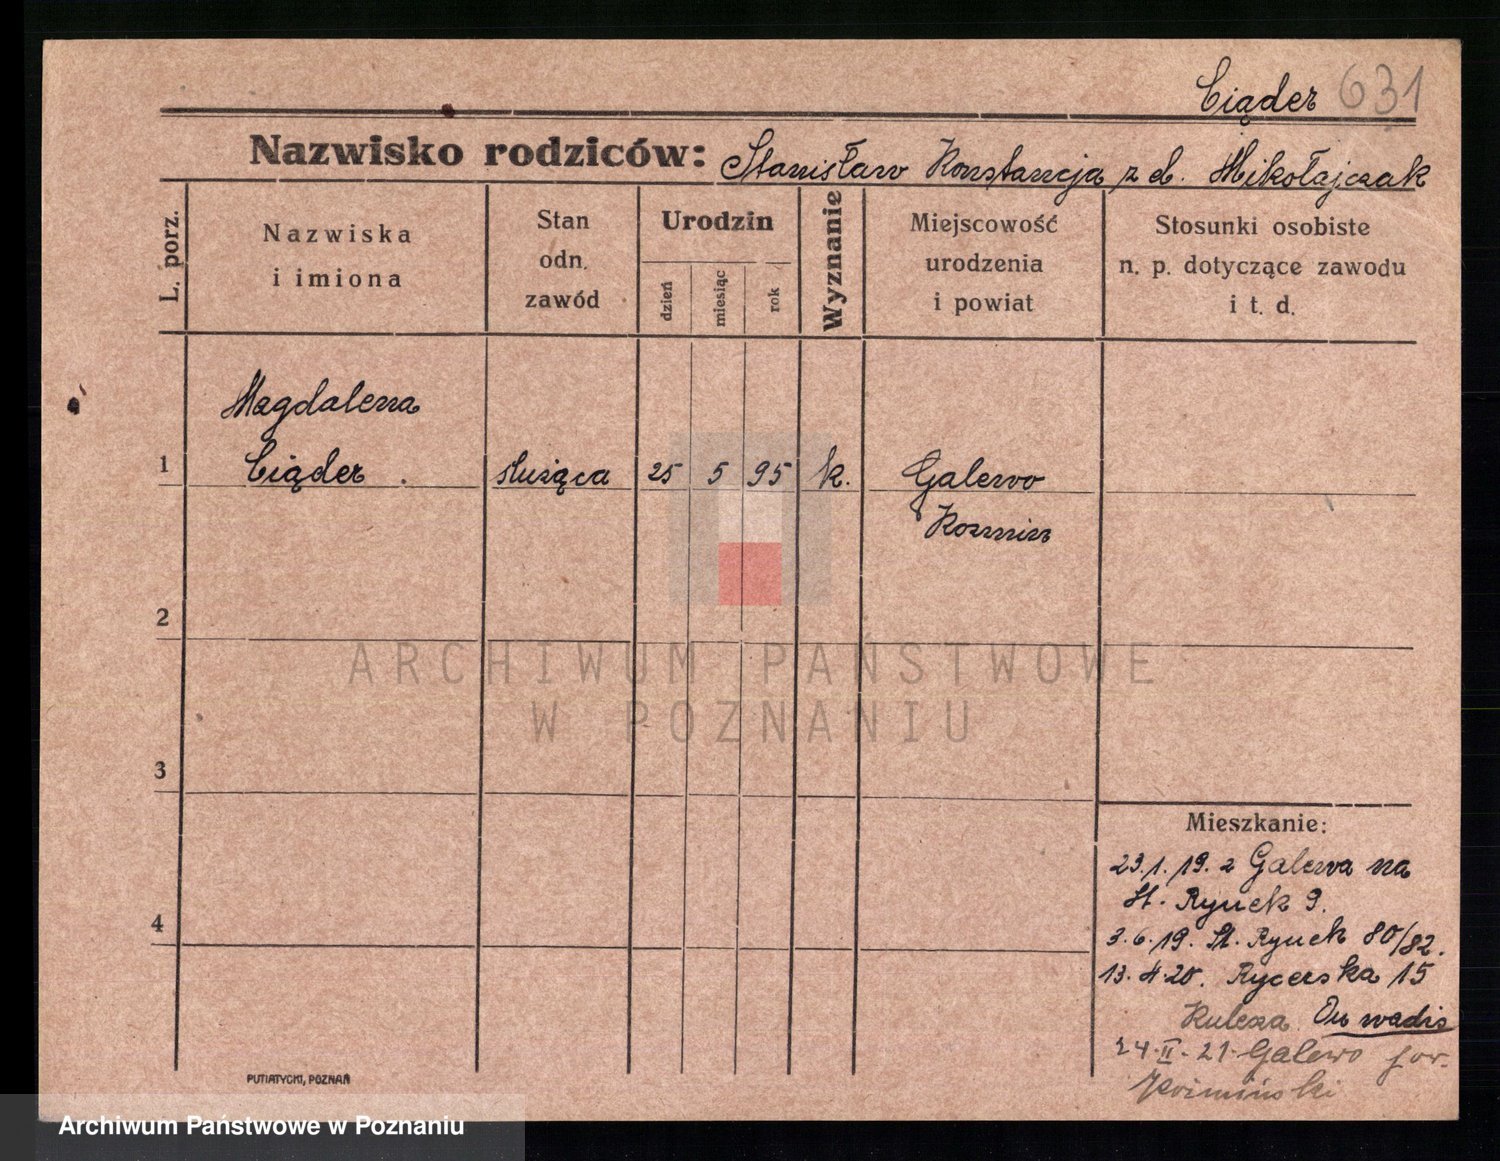 Ciąder 631
Nazwisko rodziców: Stanisław Konstancja z d. Mikołajczak
L. porz.
Nazwiska
i imiona
Stan
odn.
zawód
Urodzin
dzień
miesiąc
rok
Wyznanie
Miejscowość
urodzenia
i powiat
Stosunki osobiste
n. p. dotyczące zawodu
i t. d.
Magdalena
1 Ciąder. służąca 25 5 95 k. Galewo
Kozmin
2
ARCHIWUM PAŃSTWOWE
W POZNANIU
3
Mieszkanie:
23.1.19. z Galewa na
St. Rynek 9.
4
3.6.19. St. Rynek 80/82.
13.4.20. Rycerska 15
Kulesza Qu wadis
24.II.21. Galewo
Koźmiński
PUTIATYCKI, POZNAŃ
Archiwum Państwowe w Poznaniu